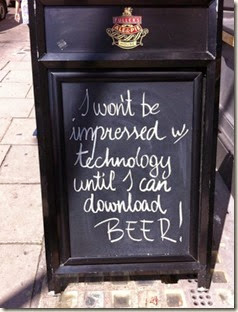 FULLER'S
ALE & PIE
I won't be
impressed w/
technology
until I can
download
BEER!